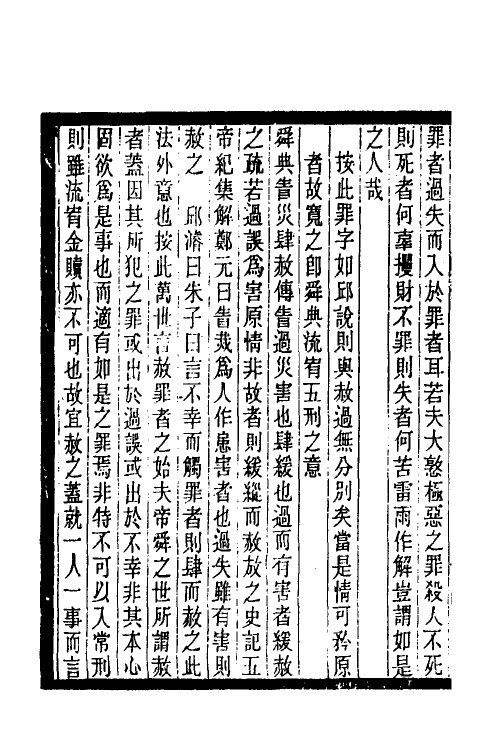 罪者過失而入於罪者耳若夫大憝極惡之罪殺人不死
則死者何辜攫財不罪則失者何苦雷雨作解豈謂如是
之人哉
按此罪字如邱說則與赦過無分別矣當是情可矜原
者故寬之卽舜典流宥五刑之意
舜典眚災肆赦傳眚過災害也肆緩也過而有害者緩赦
之疏若過誤爲害原情非故者則緩縱而赦放之史記五
帝紀集解鄭元曰眚烖爲人作患害者也過失雖有害則
赦之　邱濬曰朱子曰言不幸而觸罪者則肆而赦之此
法外意也按此萬世言赦罪者之始夫帝舜之世所謂赦
者蓋因其所犯之罪或出於過誤或出於不幸非其本心
固欲爲是事也而適有如是之罪焉非特不可以入常刑
則雖流宥金贖亦不可也故宜赦之蓋就一人一事而言